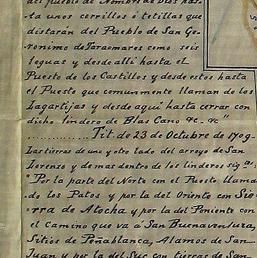 del pueblo de Nombre de Dios has-
ta unos cerrillos ó tetillas que
distarán del Pueblo de San Ge-
ronimo de Taraomares como seis
leguas y desde allí hasta el
Puesto de los Castillos y desde estos hasta
el Puesto que comunmente llaman de los
Lagartijas y desde aquí hasta cerrar con
dicho lindero de Blas Cano &c. &c"
Tit. de 23 de Octubre de 1709.
Las tierras de uno y otro lado del arroyo de San
Lorenzo y de mas dentro de los linderos sig.tes:
"Por la parte del Norte con el Puesto llama-
do los Patos y por la del Oriente con Sie-
rra de Atocha y por la del Poniente con
el camino que va á San Buenaventura,
Sitios de Peñablanca, Alamos de San
Juan y por la del Sur con tierras de San